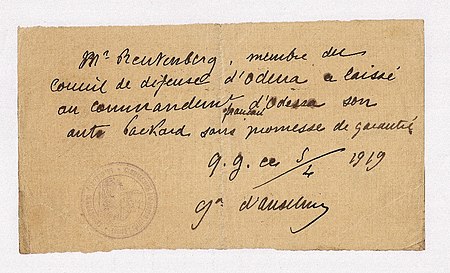 Mr Reutenberg, membre du
Conseil de défense d'Odessa a laissé
au commandement français d'Odessa son
auto Packard sans promesse de garantie
q.g. ce 5/4 1919
Gn d'Anselme